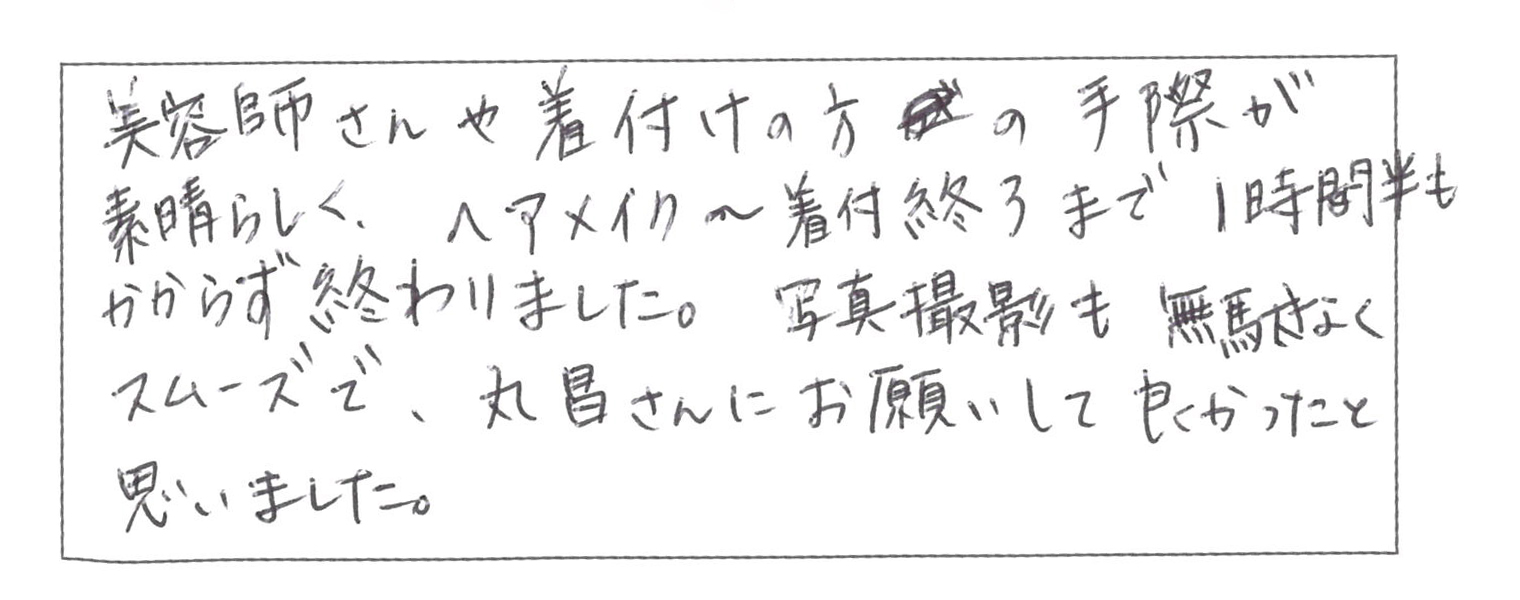 美容師さんや着付けの方の手際が
素晴らしく、ヘアメイク〜着付終了まで1時間半も
かからず終わりました。写真撮影も無駄なく
スムーズで、丸昌さんにお願いして良くかったと
思いました。